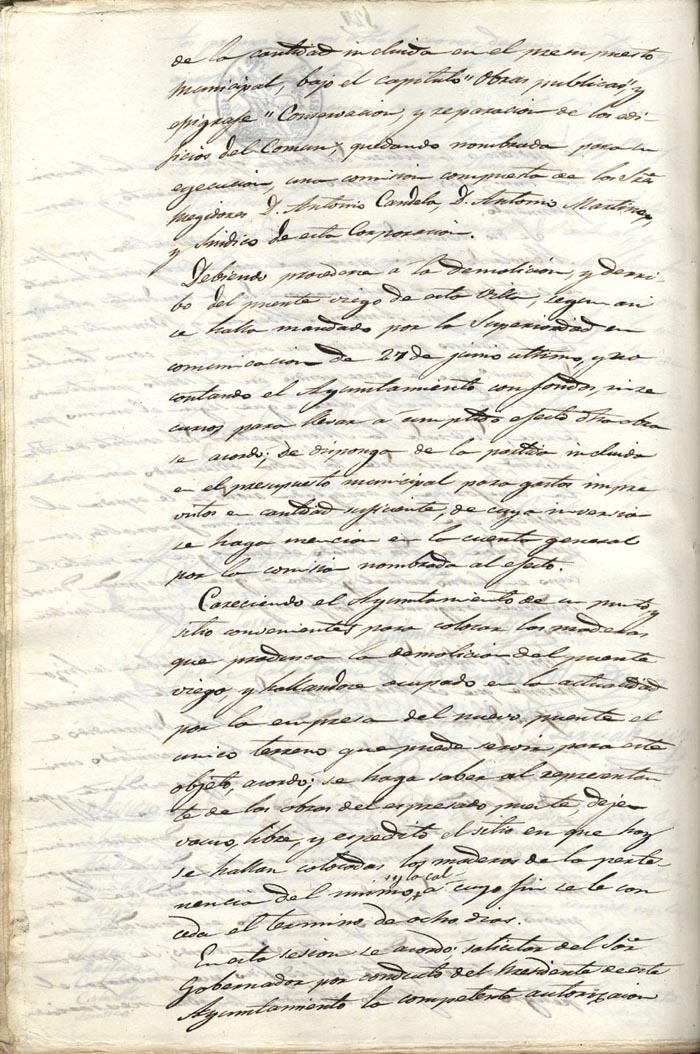 de la cantidad incluida en el presupuesto
municipal, bajo el capitulo "Obras publicas", y
epigrafe "Conservacion, y reparacion de los edi-
ficios del Comun", quedando nombrada para su
ejecucion, una comision compuesta de los Sres
Regidores D. Antonio Candela, D. Antonio Martinez,
y Sindico de esta Corporacion.
Debiendo procederse á la demolicion, y derri-
bo del puente viego de esta Villa, segun asi
se halla mandado por la Superioridad en
comunicacion de 27 de junio ultimo, y no
contando el Ayuntamiento con fondos, ni re
cursos para llevar á cumplido efecto dha obra
se acordó; se disponga de la partida incluida
en el presupuesto municipal para gastos impre
vistos en cantidad suficiente, de cuya inversion
se haga mencion en la cuenta general
por la comision nombrada al efecto.
Careciendo el Ayuntamiento de un punto, y
sitio convenientes para colocar las maderas
que produzca la demolicion del puente
viego, y hallandose ocupado en la actualidad
por la empresa del nuevo puente el
unico terreno que puede servir para este
objeto, acordo; se haga saber al representan
te de las obras del espresado puente, deje
vacuo, libre, y espedito el sitio en que hoy
se hallan colocadas las maderas de la perte-
nencia del mismo, y la cal á cuyo fin se le con
ceda el termino de ocho dias.
En esta sesion se acordo: solicitar del Sor
Gobernador por conducto del Presidente de este
Ayuntamiento la competente autorizacion